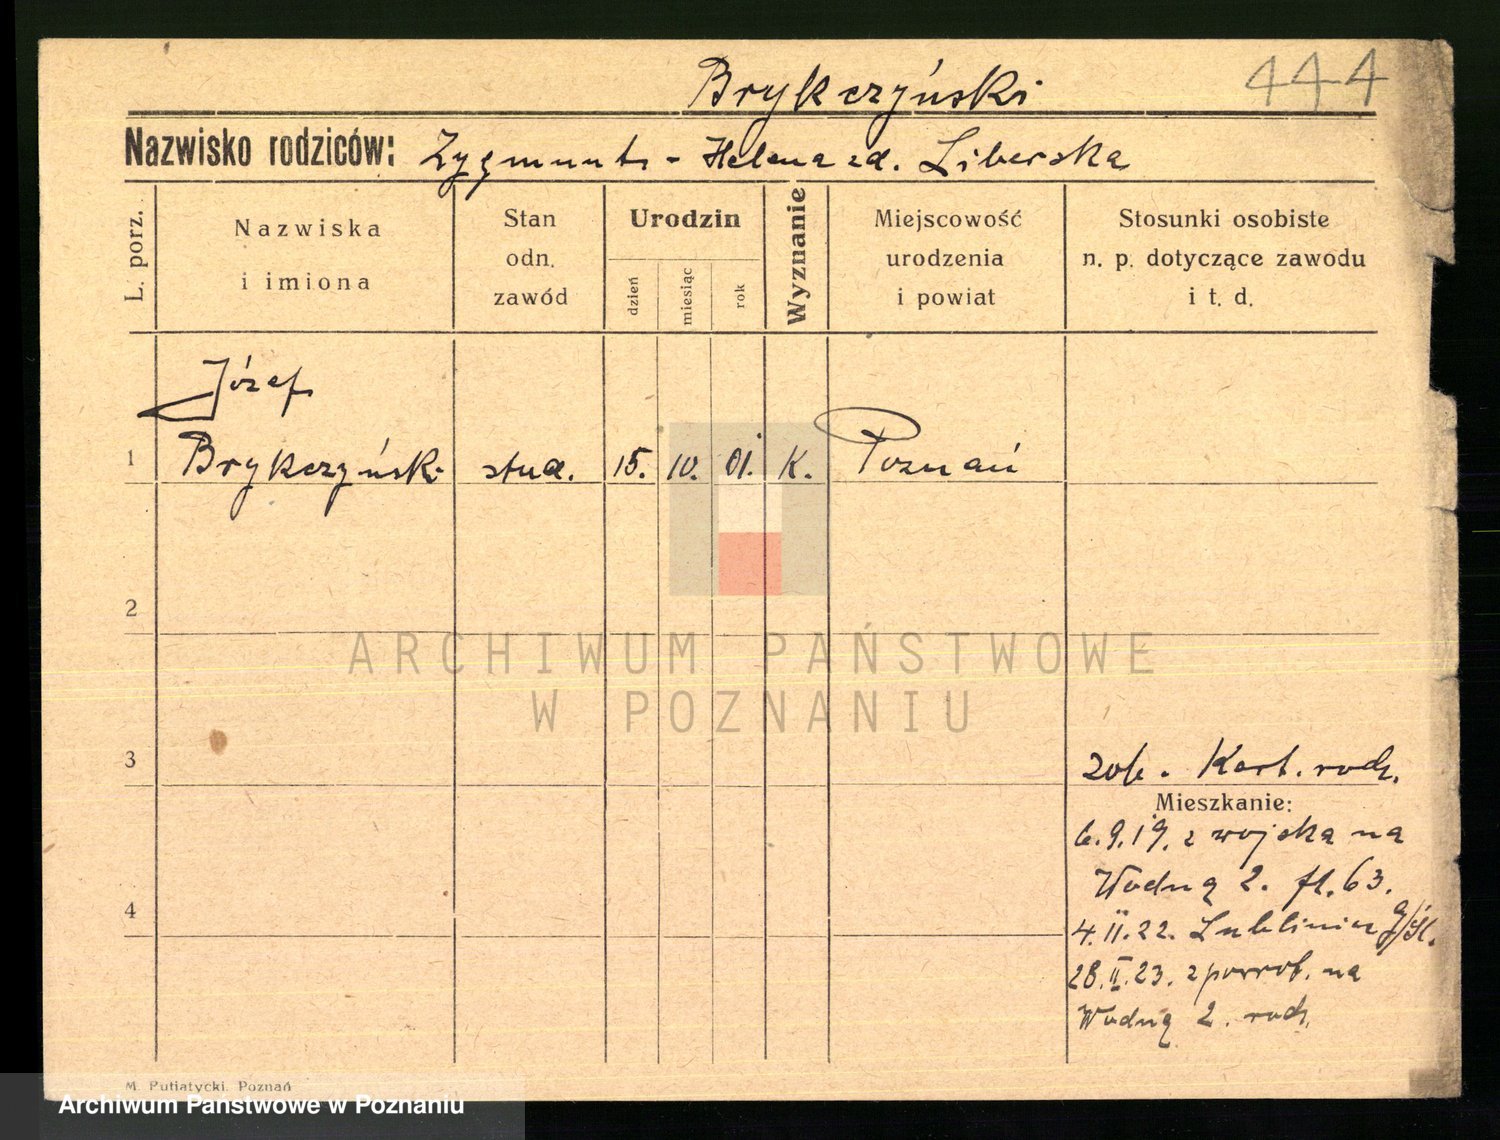 Brykczyński 444
Nazwisko rodziców: Zygmunt - Helena zd. Liberska
L. porz.
Nazwiska
i imiona
Stan
odn.
zawód
Urodzin
dzień
miesiąc
rok
Wyznanie
Miejscowość
urodzenia
i powiat
Stosunki osobiste
n. p. dotyczące zawodu
i t. d.
Józef
1 Brykczyński stud. 15. 10. 01. K. Poznań
2
ARCHIWUM PAŃSTWOWE
W POZNANIU
3
zob. Kart. rodz.
Mieszkanie:
6.9.19. z wojska na
Wodną 2. fl. 63.
4
4.II.22. Lubliniec G/Śl.
28.II.23. z powrot. na
Wodną 2. rodz.
M. Putiatycki, Poznań
Archiwum Państwowe w Poznaniu